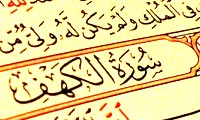 فِى ٱلْمُلْكِ وَلَمْ يَكُن لَّهُۥ وَلِىٌّ مِّنَ
سُورَةُ الكَهْفِ